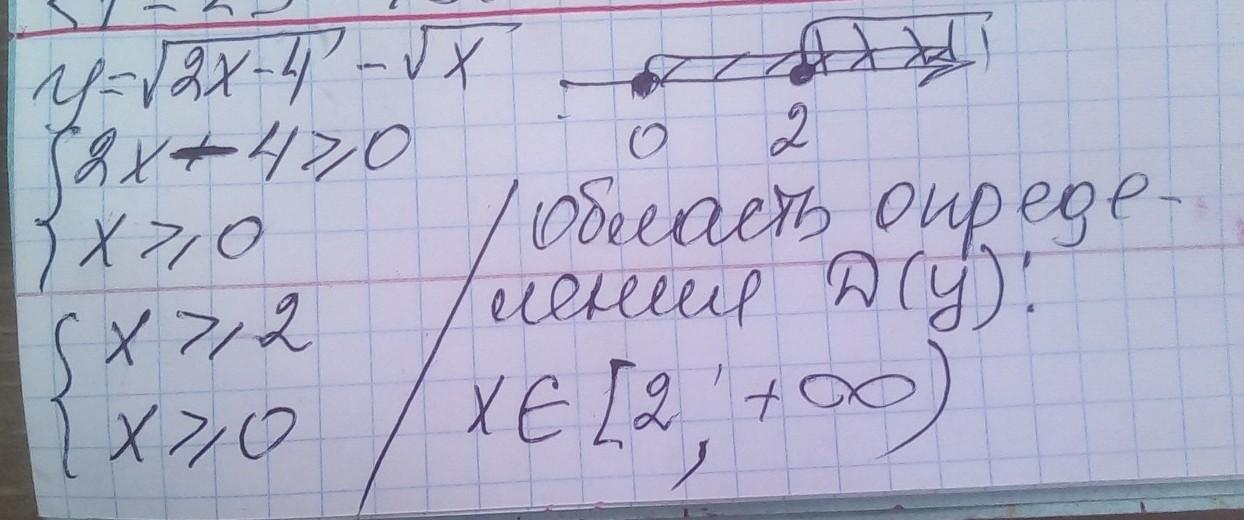 y=√2x-4 - √x
0 2
{2x-4≥0
x≥0
{x≥2
x≥0
Область опреде-
ления D(y):
x∈[2; +∞)